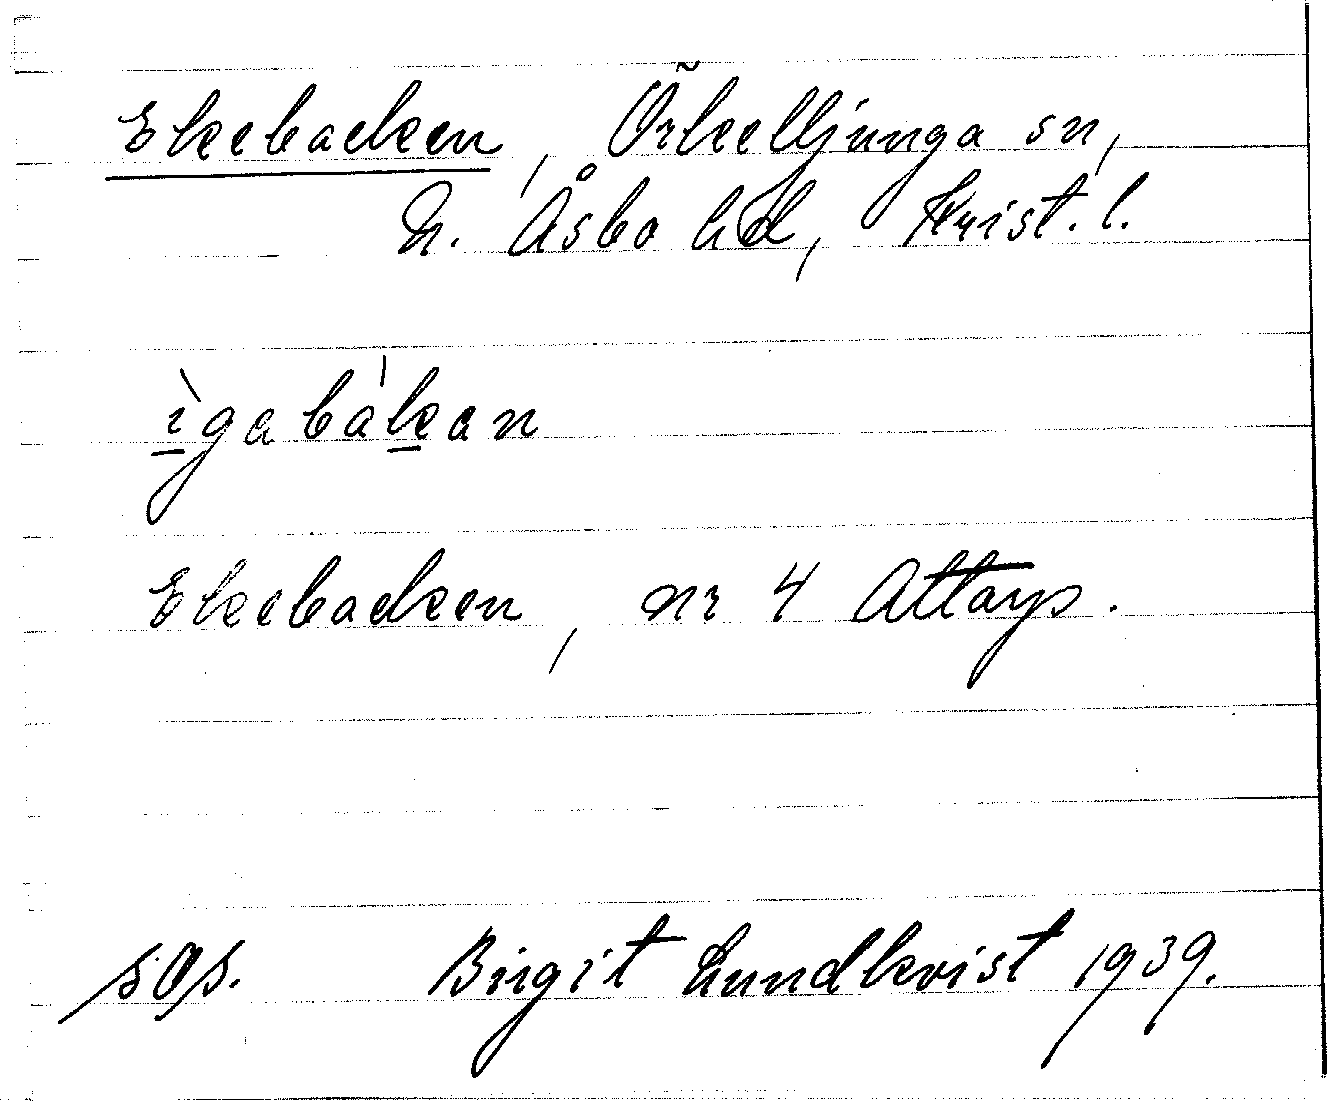 Ekebacken, Örkelljunga sn,
N. Åsbo hd, Krist. l.
ìgabàkan
Ekebacken, nr 4 Attarp.
sOs. Birgit Lundkvist 1939.